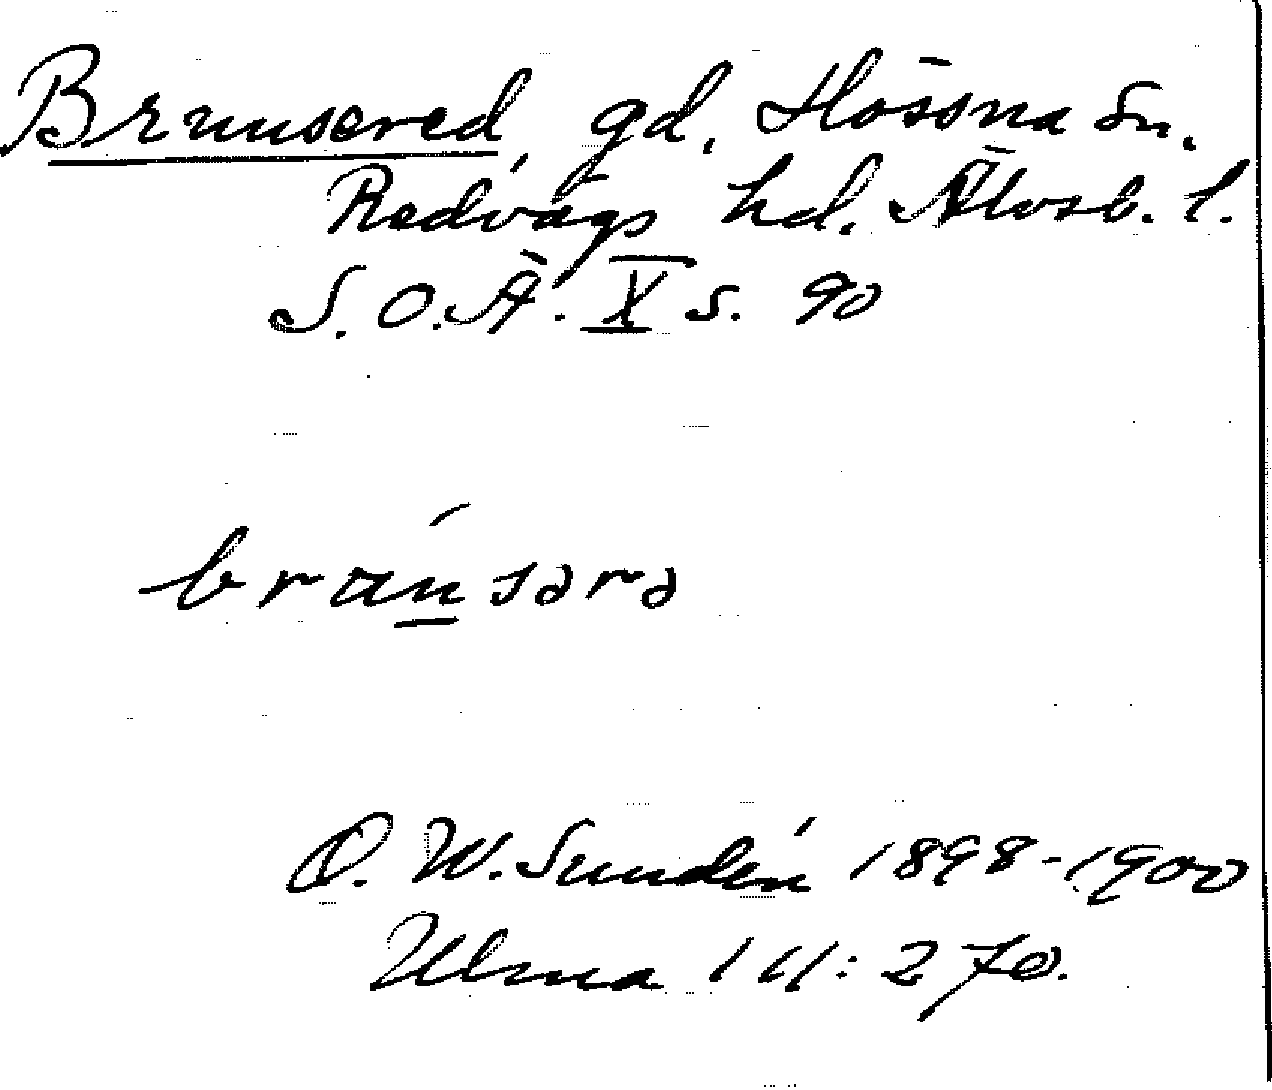 Brunsered, gd. Hössna sn.
Redvägs hd. Älvsb. l.
S.O.Ä. X s. 90
bránsərə
O. W. Sundén 1898-1900
Ulma 111:270.